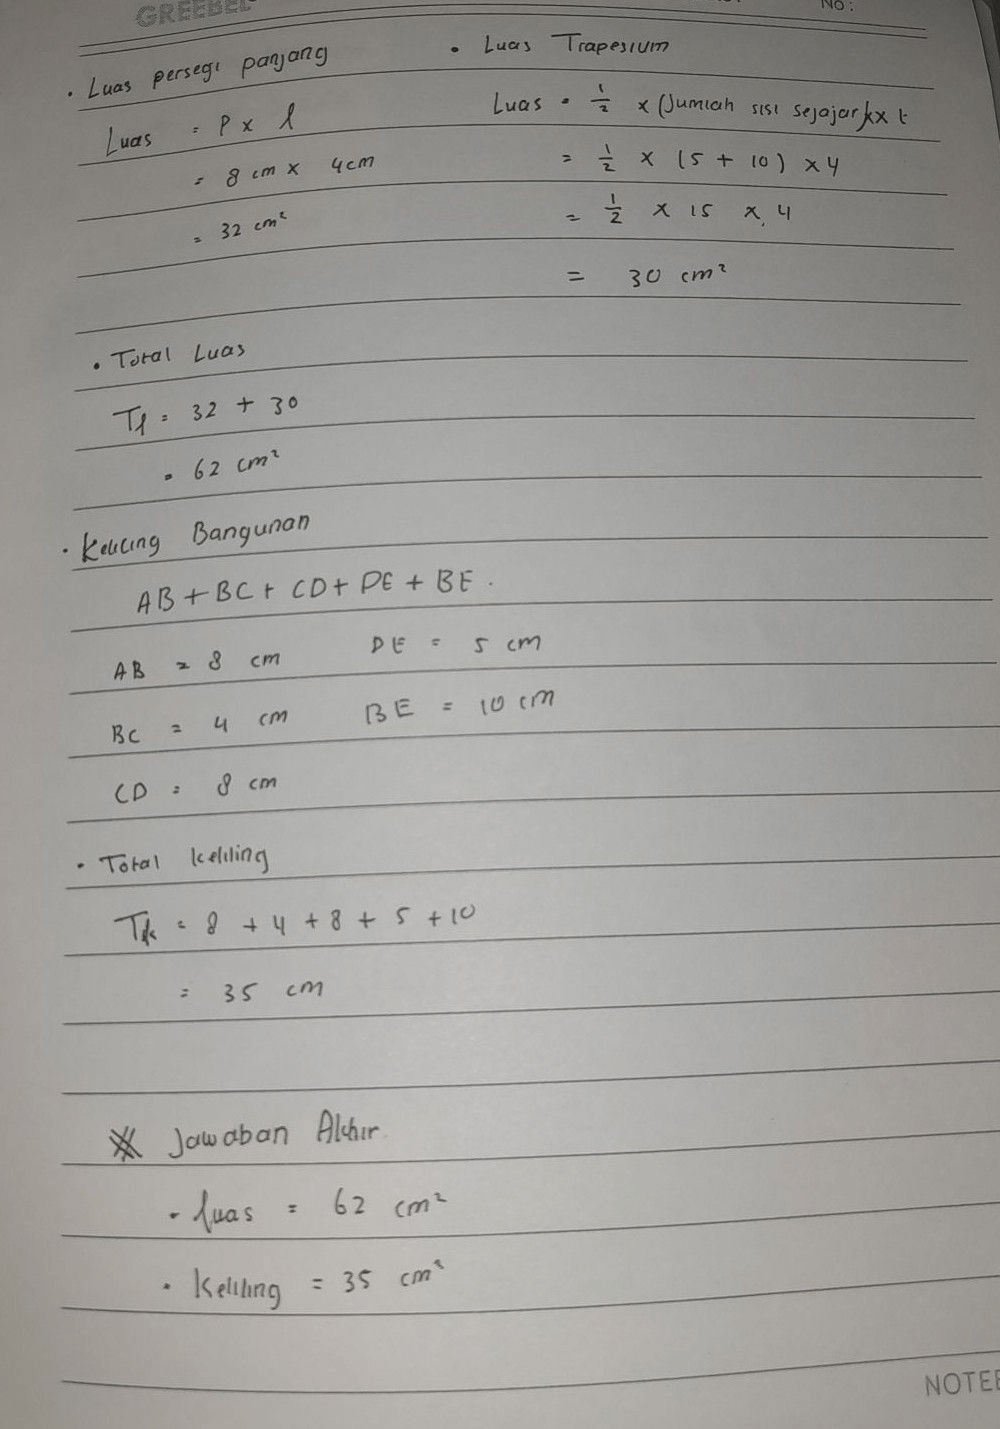 GREEBEL
NO:
• Luas persegi panjang
Luas = P x l
= 8 cm x 4cm
= 32 cm²
• Luas Trapesium
Luas = 1/2 x (Jumlah sisi sejajar) x t
= 1/2 x (5 + 10) x 4
= 1/2 x 15 x 4
= 30 cm²
• Total Luas
Tl = 32 + 30
= 62 cm²
• Keliling Bangunan
AB + BC + CD + DE + BE.
AB = 8 cm DE = 5 cm
BC = 4 cm BE = 10 cm
CD = 8 cm
• Total keliling
Tk = 8 + 4 + 8 + 5 + 10
= 35 cm
Jawaban Akhir.
• luas = 62 cm²
• Keliling = 35 cm²
NOTEB